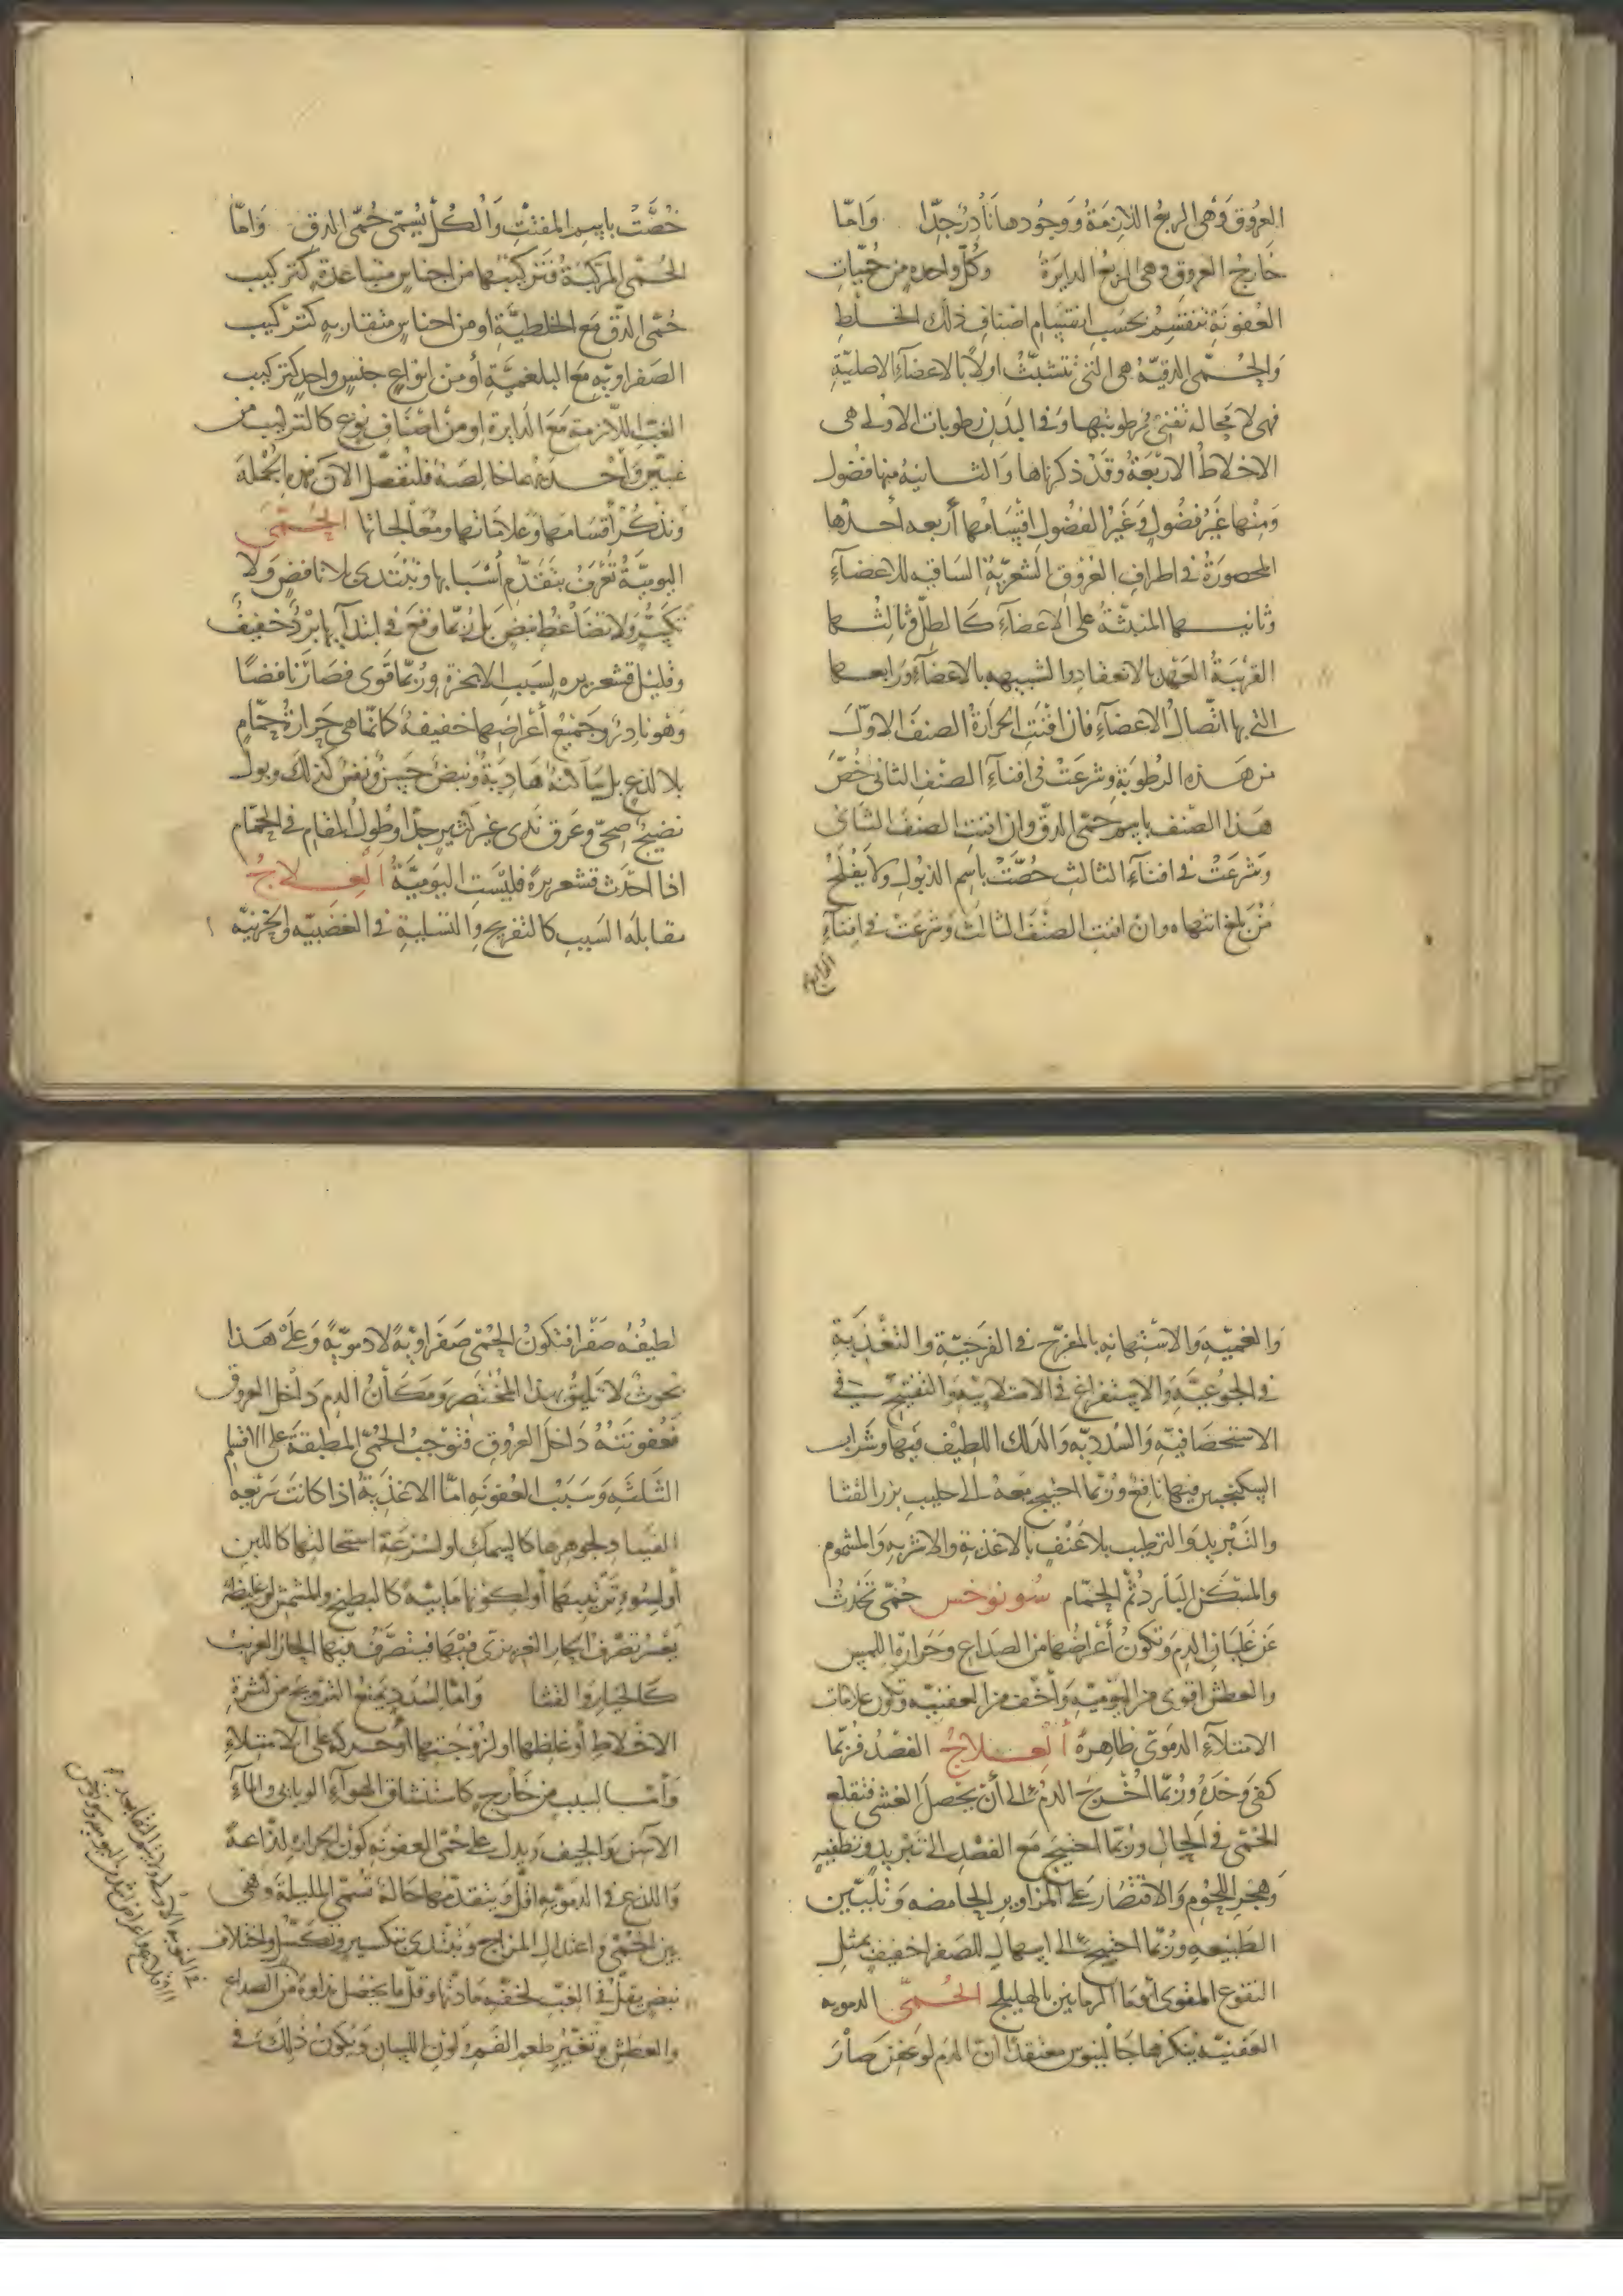 العروق وهى الربع اللازمة ووجودها نادر جدّا واما
خارج العروق وهى الربع الدايرة وكل واحده من حميات
العفونة تنقسم بحسب انقسام اصناف ذلك الخلط
والحمى الدقية هى التى تتشبث اولا بالاعضآء الاصلية
فهى لا محالة تفنى رطوبتها وفى البدن رطوبات الاولى هى
الاخلاط الاربعة وقد ذكرناها والثانية منها فضول
ومنها غير فضول وغير الفضول اقسامها أربعه احدها
المحصورة فى اطراف العروق الشعرية الساقيه للاعضآء
وثانيها المنبثة على الاعضآء كالطل وثالثها
القريبة العهد بالانعقاد والشبيهه بالاعضآء ورابعها
التى بها اتصال الاعضآء فان افنت الحرارة الصنف الاول
من هذه الرطوبة وشرعت فى افنآء الصنف الثانى خص
هذا الصنف باسم حمى الدق وان افنت الصنف الثانى
وشرعت فى افنآء الثالث خصت باسم الذبول ولا يفلح
من بلغ انتهاه وان افنت الصنف الثالث وشرعت فى افنآء
الرابع
خصت باسم المفتت والكل يسمى حمى الدق واما
الحمى المركبة فتركيبها من اجناس متباعدة كتركيب
حمى الدق مع الخلطية او من اجناس متقاربه كتركيب
الصفراويه مع البلغمية أو من انواع جنس واحد كتركيب
الغب اللازمة مع الدايرة او من اصناف نوع كالتركيب من
غبين واحدهما خالصة فلنفصل الآن هذه الجملة
ونذكر أقسامها وعلاماتها ومعالجاتها الحمى
اليومية تعرف بتقدم أسبابها وتبتدى بلا نافض ولا
تكسر ولا تضاغط نبض بل ربما وقع فى ابتدآيها برد خفيف
وقليل قشعريره لسبب الابخرة وربما قوى فصار نافضا
وهو نادر وجميع أعراضها خفيفة كانما هى حرارة حمام
بلا لذع بل ساكنة هادية ونبض حسن ونفس كذلك وبول
نضيج صحى وعرق ندى غير كثير جدا وطول المقام فى الحمام
اذا احدث قشعريرة فليست اليومية العلاج
مقابلة السبب كالتفريح والتسلية فى الغضبيه والحزنية
والغميه والاستهانه بالمفرح فى الفرحية والتغذية
فى الجوعية والاستفراغ فى الامتلايية والتفتيح فى
الاستحصافية والسددية والدلك اللطيف فيها وشراب
السكنجبين فيها نافع وربما احتيج معه الى حليب بزر القثا
والتبريد والترطيب بلا عنف بالاغذية والاشربه والمشموم
والمسكن البارد ثم الحمام سونوخس حمى تحدث
عن غليان الدم وتكون أعراضها من الصداع وحرارة اللمس
والعطش اقوى من اليومية وأخف من العفنيه وتكون علامات
الامتلآء الدموى ظاهرة العلاج الفصد فربما
كفى وحده وربما اخرج الدم الى أن يحصل الغشى فتقلع
الحمى فى الحال وربما احتيج مع الفصد الى تبريد وتطفيه
وهجر اللحوم والاقتصار على المزاوير الحامضه وتليين
الطبيعه وربما احتيج الى اسهال للصفرا خفيف بمثل
النقوع المقوى أو مآ الرمانين بالهليلج الحمى الدمويه
العفنية ينكرها جالينوس معتقدا ان الدم لو عفن صار
لطيفه صفرا فتكون الحمى صفراوية لا دموية وعلى هذا
بحوث لا تليق بهذا المختصر ومكان الدم داخل العروق
فعفونته داخل العروق فتوجب الحمى المطبقة على الاقسام
الثلثة وسبب العفونه اما الاغذية اذا كانت سريعه
الفساد لجوهرها كالسمك او لسرعة استحالتها كاللبن
أو لسوء ترتيبها أو لكونها مايية كالبطيخ والمشمش او غليظة
يعسر تصرف الحار الغريزى فيها فيتصرف فيها الحار الغريب
كالخيار والقثا واما السدد يمنع التروح من كثرة
الاخلاط أو غلظها او لزوجتها أو حركة على الامتلاء
وأما لسبب من خارج كاستنشاق الهوآء الوبايى والمآء
الآسن والجيف ويدل على حمى العفونه كون الحرارة لذاعة
واللذع فى الدمويه اقل ويتقدمها حالة تسمى المليلة وهى
بين الحمى واعتدال المزاج وتبتدى بتكسير وتكسل واختلاف
نبض يقل فى الغب لخفه مادتها وقل ما يحصل نداوة من الصداع
والعطش وتغير طعم الفم ولون اللسان ويكون ذلك فى